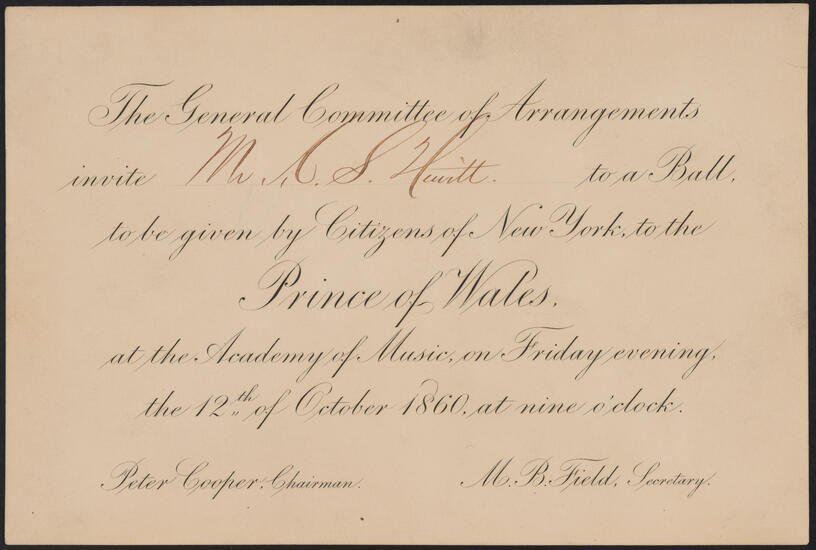 The General Committee of Arrangements
invite Mr. A. S. Hewitt. to a Ball,
to be given by Citizens of New York, to the
Prince of Wales,
at the Academy of Music, on Friday evening,
the 12th of October 1860, at nine o'clock.
Peter Cooper, Chairman. M. B. Field, Secretary.